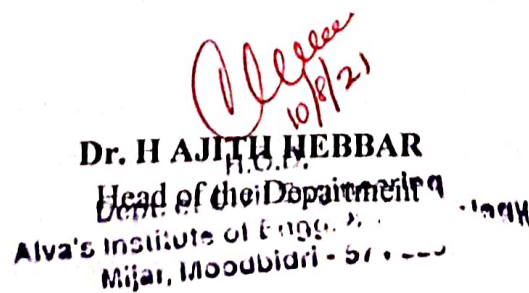 10/8/21
Dr. H AJITH HEBBAR
H.O.D.
Head of the Department
Dept. of Civil Engineering
Alva's Institute of Engg. &
Mijar, Moodbidri - 57